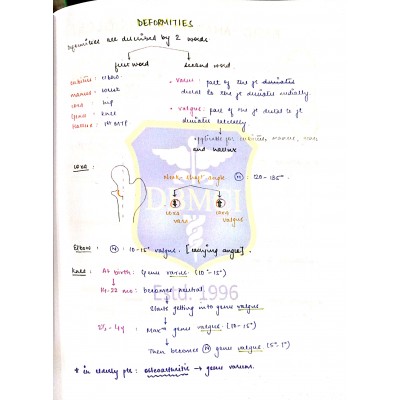 DEFORMITIES
Deformities are described by 2 words
first word
second word
cubitus : elbow
manus : wrist
coxa : hip
Genu : knee
Hallux : 1st MTP
• varus : part of the jt deviates
distal to the jt deviates medially
• valgus : part of the distal to jt
deviates laterally
applicable for cubitus, manus,
and hallux
COXA :
neck shaft angle
(N) : 120-135°
coxa vara
coxa valgus
DBMCI
Estd. 1996
Elbow : (N) : 10-15° valgus. [carrying angle]
Knee : At birth : Genu varus (10°-15°)
becomes neutral
starts getting into genu valgus
Max genu valgus. (10-15°)
Then becomes (N) genu valgus
* in elderly pts : osteoarthritis → genu varum.